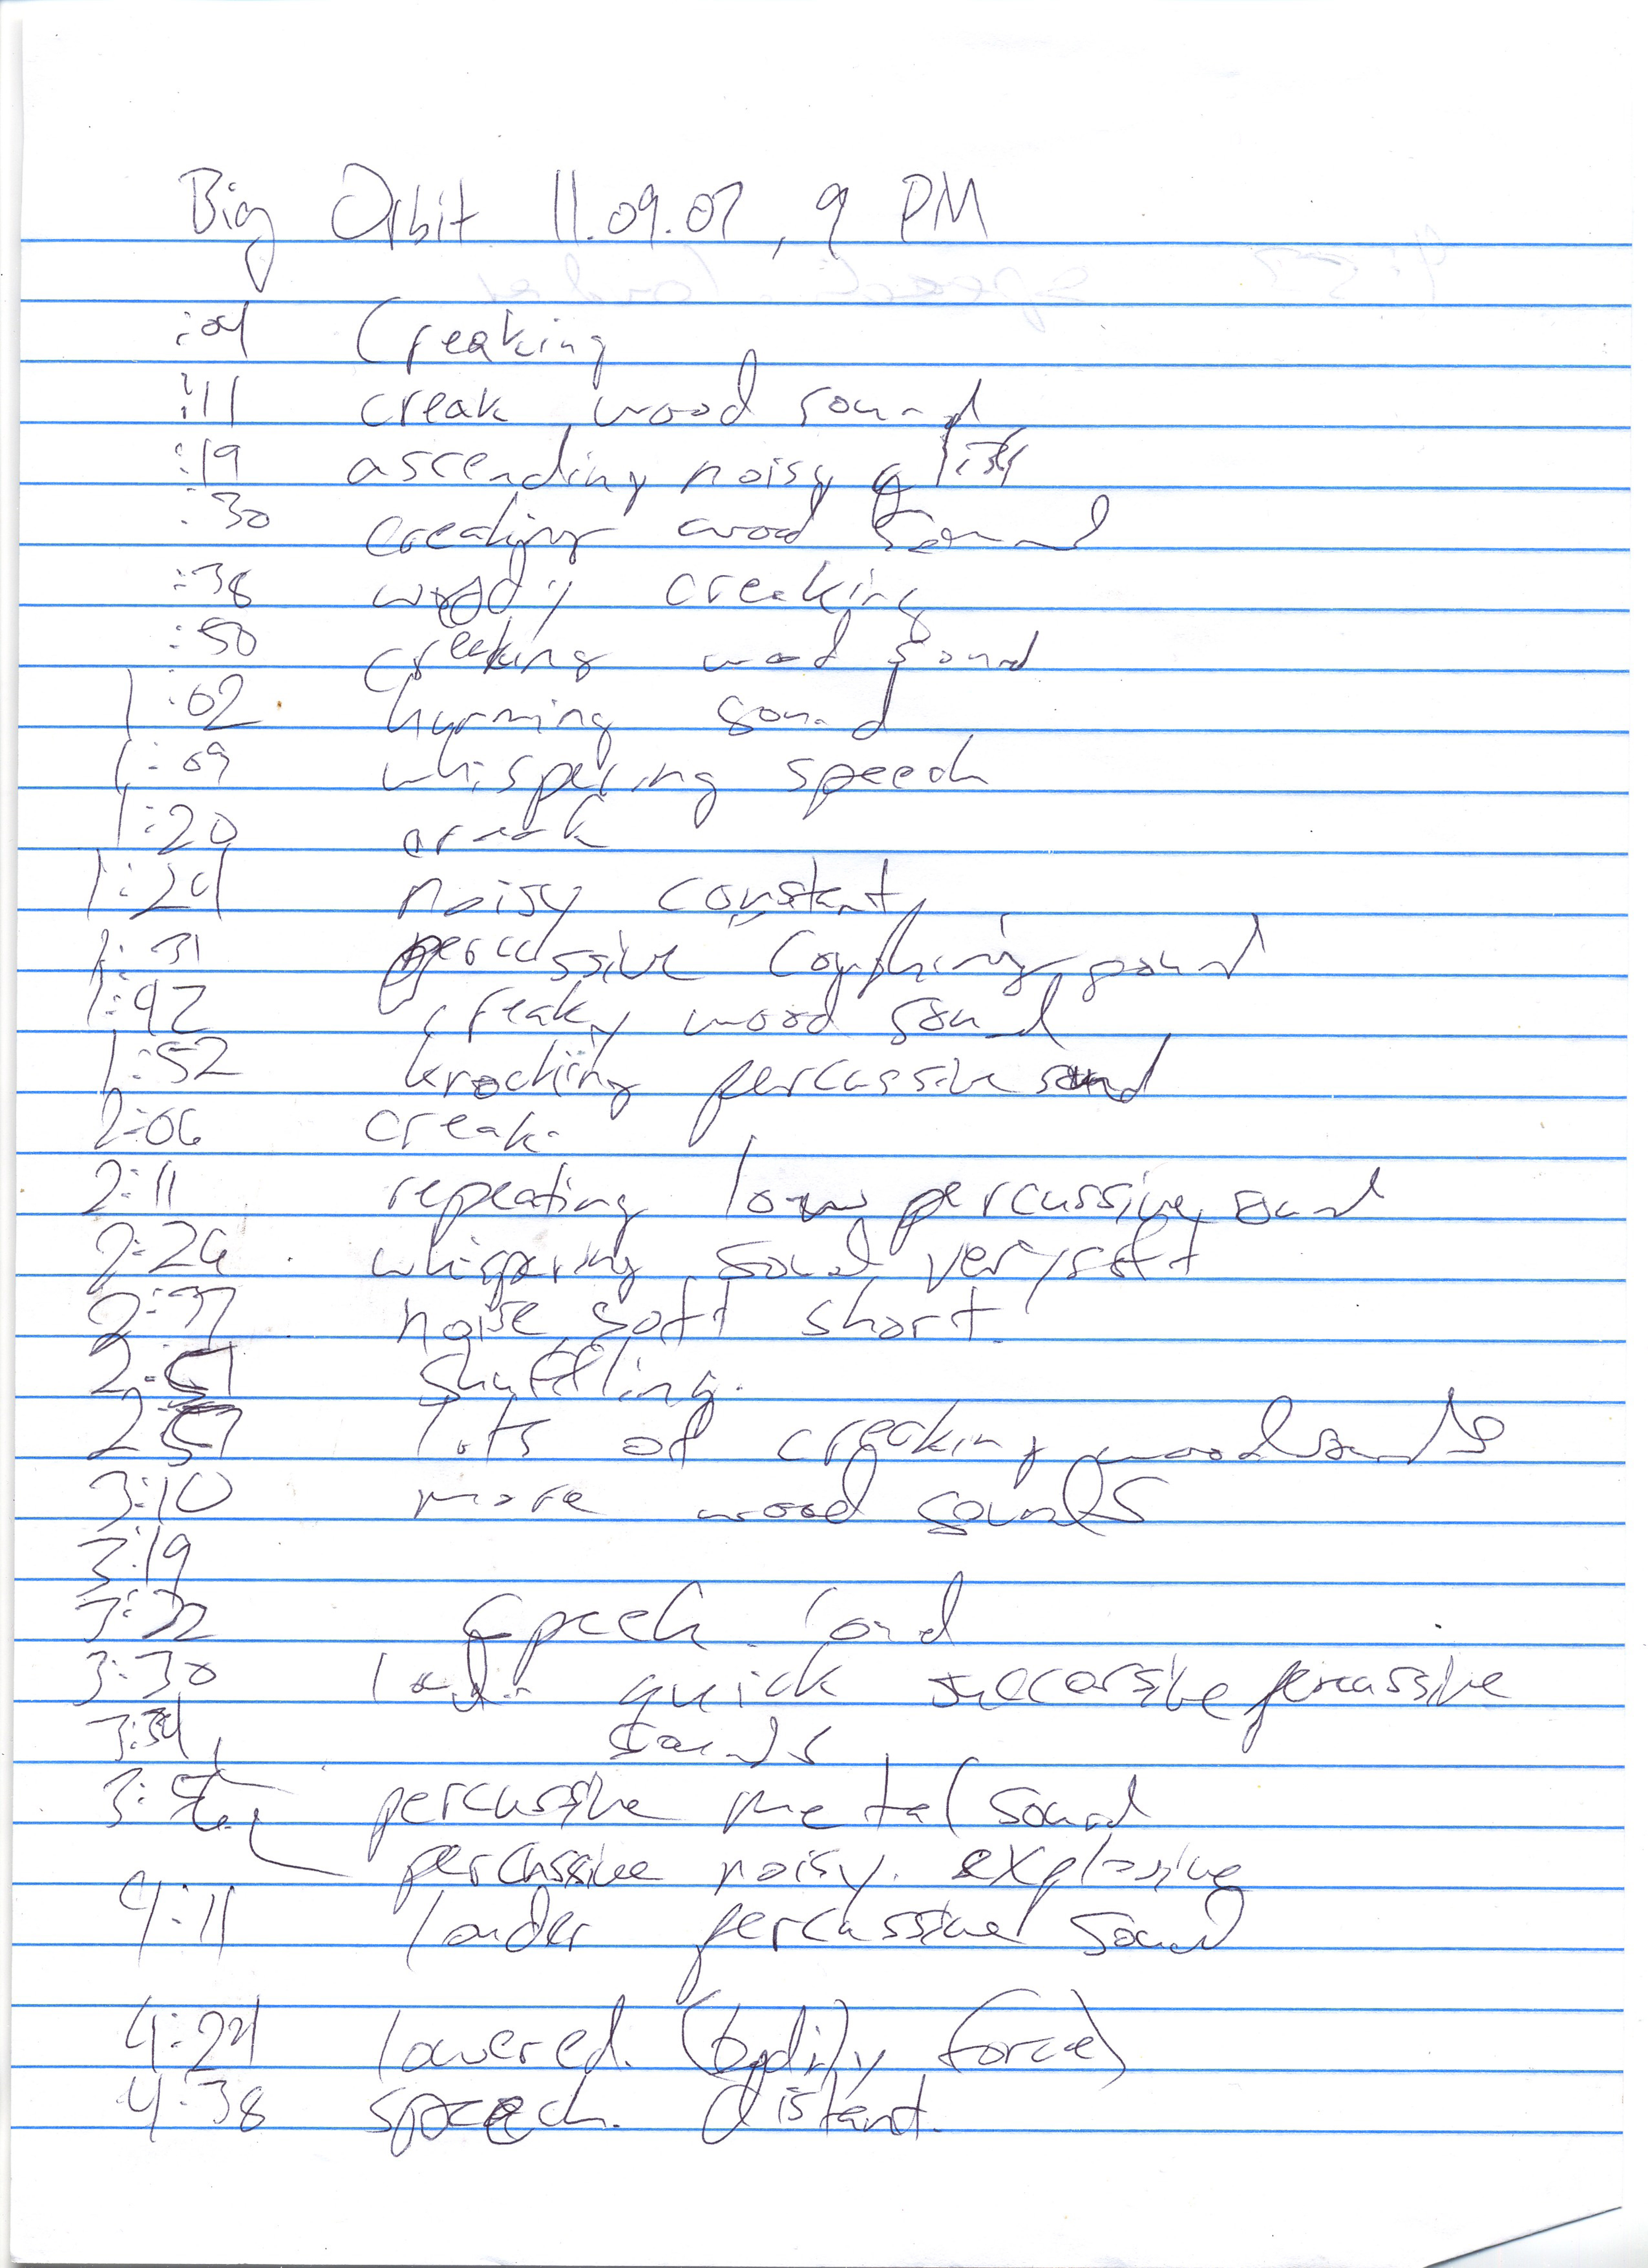 Big Orbit 11.09.07, 9 PM
:04 Creaking
:11 creak, wood sound
:19 ascending noisy
:30 creaking wood sound
:38 woody creaking
:50 creaking wood sound
1:02 humming sound
1:09 whispering speech
1:20 creak
1:24 noisy constant
1:31 percussive coughing sound
1:42 creaky wood sound
1:52 knocking percussive sound
2:06 creak.
2:11 repeating low percussive sound
2:26 whispering sound very soft
2:37 noise, soft short.
2:51 shuffling.
2:57 lots of creaking wood sounds
3:10 more wood sounds
3:19
3:22 speech. loud
3:30 loud. quick successive percussive
3:34, sounds
3: percussive metal sound
percussive noisy. explosive
4:11 louder percussive sound
4:24 lowered. (bodily force)
4:38 speech. distant.